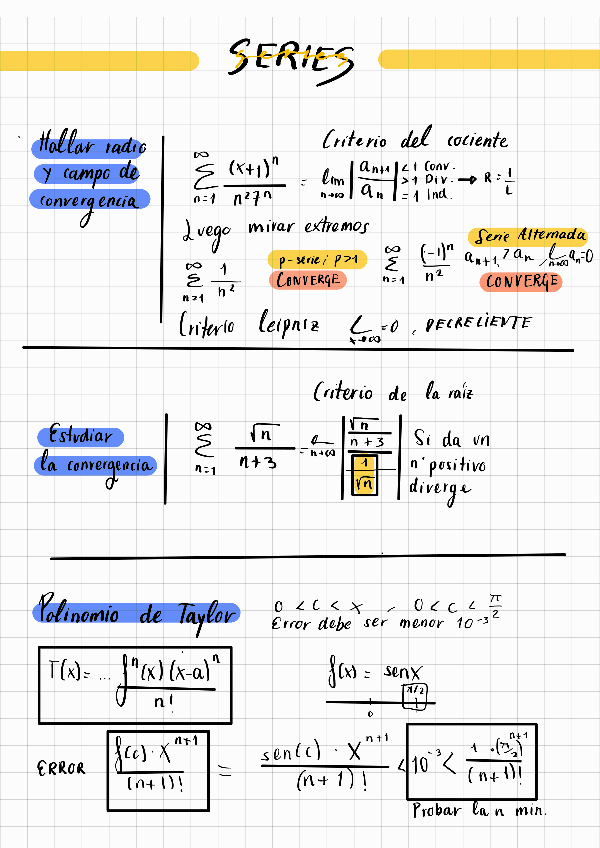 SERIES
Hallar radio
y campo de
convergencia
Criterio del cociente
∞ Σ n=1 (x+1)^n / n²7^n = lim n→∞ |a_{n+1} / a_n| <1 Conv. >1 Div. =1 Ind. → R = 1/L
Luego mirar extremos
∞ Σ n=1 1/n² p-serie; p>1 CONVERGE
Serie Alternada
∞ Σ n=1 (-1)^n / n² a_{n+1} > a_n, L n→∞ a_n=0
CONVERGE
Criterio leipniz L x→∞ = 0, DECRECIENTE
Criterio de la raíz
Estudiar
la convergencia
∞ Σ n=1 √n / n+3 = L n→∞ | (√n / n+3) / (1 / √n) |
Si da un
nº positivo
diverge
Polinomio de Taylor
0 < C < x, 0 < C < π/2
Error debe ser menor 10^-3
T(x) = ... f^n(x)(x-a)^n / n!
f(x) = senx
π/2
0
ERROR f(c) · x^{n+1} / (n+1)! = sen(c) · x^{n+1} / (n+1)! < 10^-3 < 1 · (π/2)^{n+1} / (n+1)!
Probar la n min.